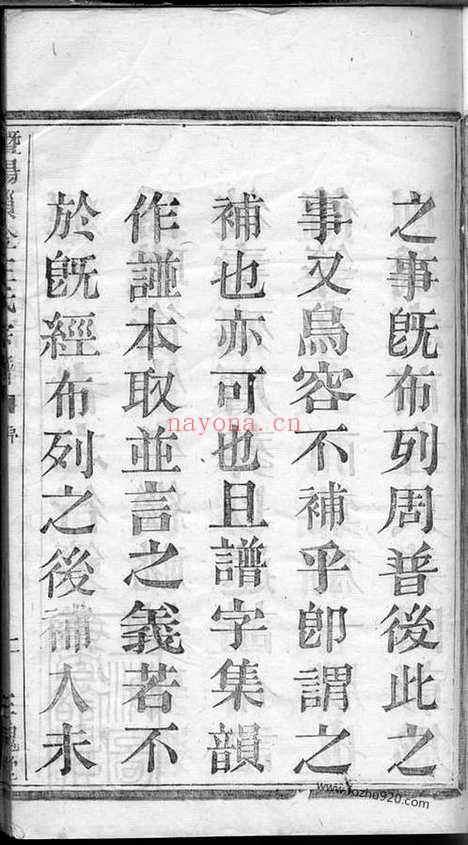 之事既布列周普後此之
事又烏容不補乎即謂之
補也亦可也且譜字集韻
作謹本取並言之義若不
於既經布列之後補入未
nayona.cn
www.fozhu920.com